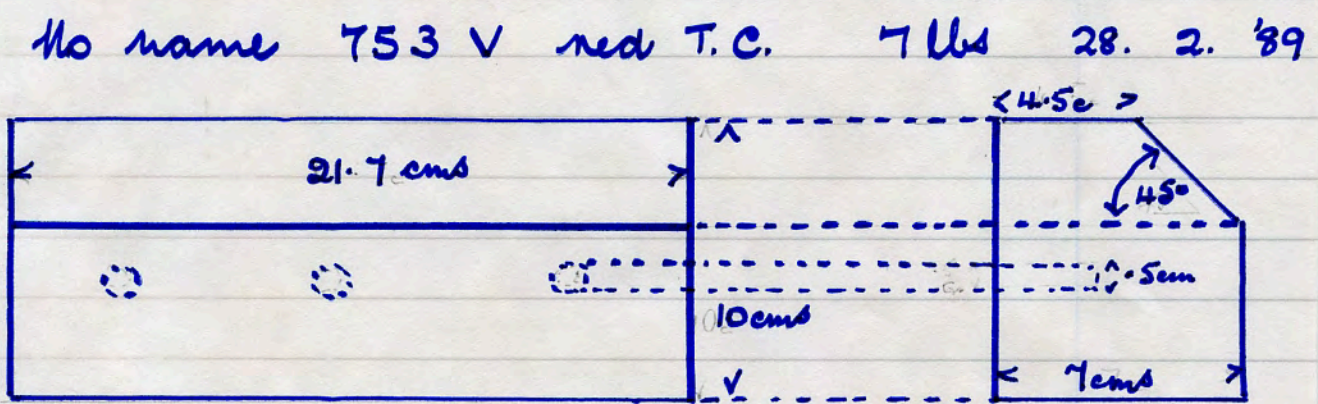 No name 753 V red T.C. 7 lbs 28. 2. '89
4.5c
21.7 cms
45°
.5cm
10cms
7cms